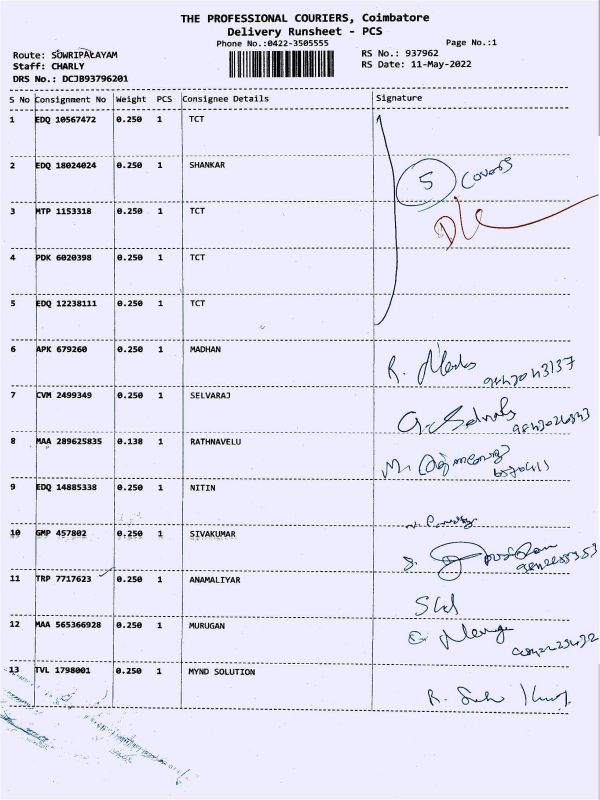 THE PROFESSIONAL COURIERS, Coimbatore
Delivery Runsheet - PCS
Phone No.:0422-3505555
Page No.:1
Route: SOWRIPALAYAM
RS No.: 937962
Staff: CHARLY
RS Date: 11-May-2022
DRS No.: DCJB93796201
S No Consignment No Weight PCS Consignee Details Signature
1 EDQ 10567472 0.250 1 TCT
2 EDQ 18024024 0.250 1 SHANKAR
5 Covers
3 MTP 1153318 0.250 1 TCT
4 PDK 6020398 0.250 1 TCT
5 EDQ 12238111 0.250 1 TCT
6 APK 679260 0.250 1 MADHAN
R.
7 CVM 2499349 0.250 1 SELVARAJ
8 MAA 289625835 0.138 1 RATHNAVELU
M.
9 EDQ 14885338 0.250 1 NITIN
10 GMP 457802 0.250 1 SIVAKUMAR
S.
11 TRP 7717623 0.250 1 ANAMALIYAR
12 MAA 565366928 0.250 1 MURUGAN
13 TVL 1798001 0.250 1 MYND SOLUTION
R.